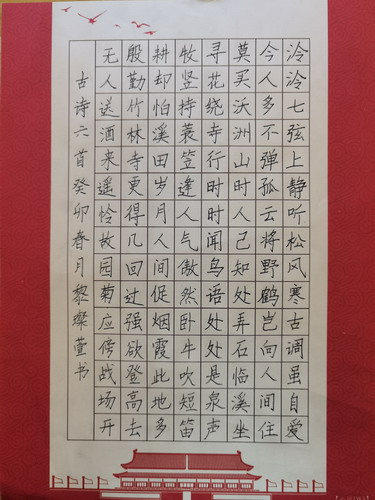 泠泠七弦上静听松风寒古调虽自爱
今人多不弹孤云将野鹤岂向人间住
莫买沃洲山时人己知处弄石临溪坐
寻花绕寺行时时闻鸟语处处是泉声
牧竖持蓑笠逢人气傲然卧牛吹短笛
耕却怕溪田岁月人间促烟霞此地多
殷勤竹林寺更得几回过强欲登高去
无人送酒来遥怜故园菊应傍战场开
古诗六首癸卯春月黎燦萱书